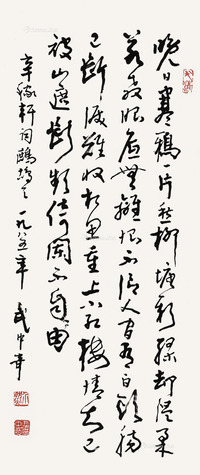 晚日寒鴉一片愁柳塘新綠却温柔
若教眼底無離恨不信人間有白頭腸
已斷淚難收相思重上小紅樓情知已
被山遮斷頻倚闌不自由
辛稼軒詞鷓鴣天 一九八五年 武中奇